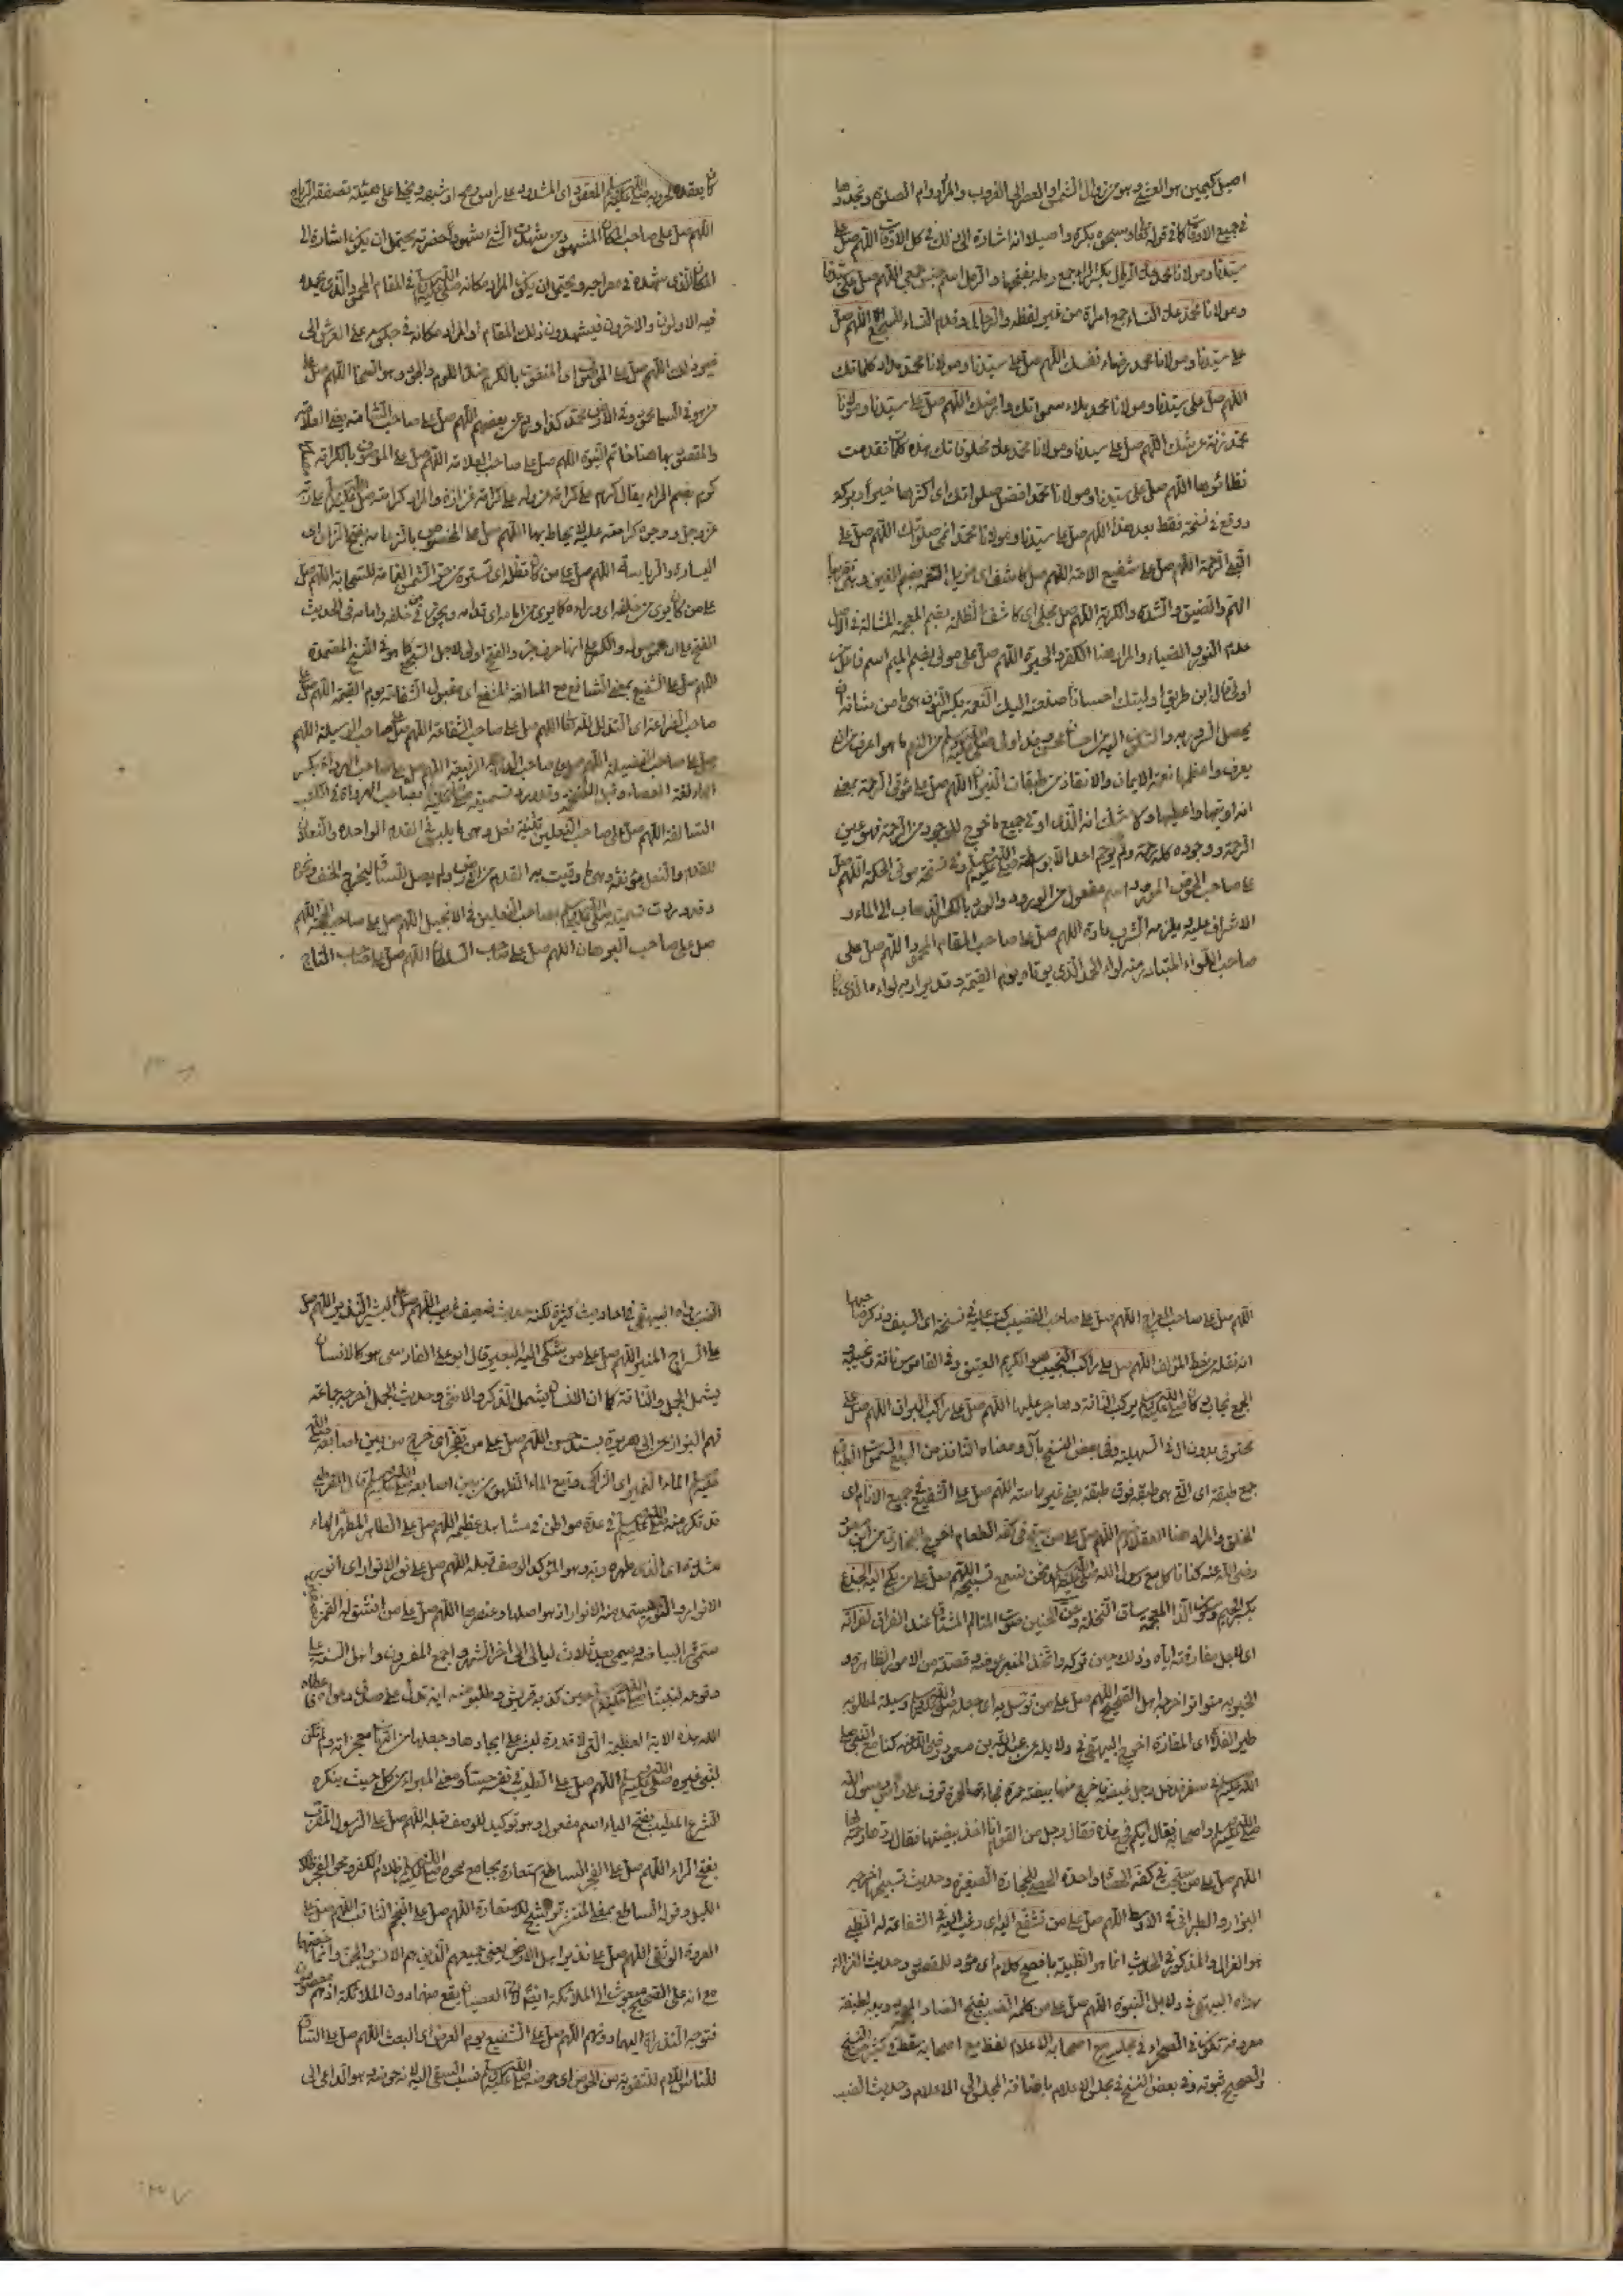 اصيل كيمين هو العشي وهو من زوال الشمس او العصر الى الغروب والمراد دوام الصلوة وتجددها
في جميع الاوقات كما في قوله تعالى وسبحوه بكرة واصيلا انه اشارة الى ذلك في كل الاوقات اللهم صل على
سيدنا ومولانا محمد عدد الرمال بكسر الراء جمع رملة بفتحها والرمل اسم جنس جمعي اللهم صل على سيدنا
ومولانا محمد عدد النساء جمع امراة من غير لفظه والرجال وقدم النساء للسجع اللهم صل
على سيدنا ومولانا محمد رضاء نفسك اللهم صل على سيدنا ومولانا محمد مداد كلماتك
اللهم صل على سيدنا ومولانا محمد ملاء سمواتك وارضك اللهم صل على سيدنا ومولانا
محمد زنة عرشك اللهم صل على سيدنا ومولانا محمد عدد مخلوقاتك هذه كلها تقدمت
نظائرها اللهم صل على سيدنا ومولانا محمد افضل صلواتك اى اكثرها خيرا وبركة
ووقع في نسخة فقط بعد هذا اللهم صل على سيدنا ومولانا محمد انمى صلوتك اللهم صل على
النبي الرحمة اللهم صل على شفيع الامة اللهم صل على كاشف اى مزيل الغمة بضم الغين
الهم والضيق والشدة والكربة اللهم صل على مجلي اى كاشف الظلمة بضم المعجمة المشالة في الاصل
عدم النور والضياء والمراد هنا الكفر والحيرة اللهم صل على مولى بضم الميم اسم فاعل من
اولى قال ابن طريف اوليتك احسانا صنعته اليك النعمة بكسر النون هى ما من شانه ان
يحصل السرور به
يعرف واعظمها نعمة الايمان والانقاذ من طبقات النيران اللهم صل على مؤتي الرحمة بمعنى
انه اوتيها واعطيها ولا شك انه الذى اوتي جميع ما خرج للوجود من الرحمة فهو عين
الرحمة ووجوده كله رحمة ولم يرحم احد الا بواسطته صلى الله عليه وسلم وفي نسخة مؤتي الحكمة اللهم صل
على صاحب الحوض المورود اسم مفعول من الورود والورد بالكسر الذهاب الى الماء و
الاشراف عليه ويلزمه الشرب عادة اللهم صل على صاحب المقام المحمود اللهم صل على
صاحب اللواء المتبادر منه لواء الحمد الذى يوتاه يوم القيمة وقد يراد به لواءه الذى كان
المعقود اى المشدود على راس رمح
اللهم صل على صاحب المكان المشهود من شهدت الشئ شهودا حضرته يحتمل ان يكون اشارة الى
المكان الذى شهده في معراجه ويحتمل ان يكون المراد مكانه صلى الله عليه وسلم في المقام المحمود الذى يحمده
فيه الاولون والاخرون فيشهدون ذلك المقام او المراد مكانه في جلوسه على العرش الى
غير ذلك اللهم صل على الموصوف اى المنعوت بالكرم ضد اللوم والجود وهو السخا اللهم صل على
من هو في السماء محمود وفي الارض محمد كذا ورد عن بعضهم اللهم صل على صاحب الشامة يعني العلامة
والمقصود بها هنا خاتم النبوة اللهم صل على صاحب العلامة اللهم صل على الموصوف بالكرامة
كرم بضم الراء يقال كرم على كرامة
عز وجل ووجوه كرامته عليه لا يحاط بها اللهم صل على المخصوص بالزعامة بفتح الزاى اى
السيادة والرياسة اللهم صل على من كان تظله اى تستره من حر الشمس الغمامة للسحابة اللهم صل
على من كان يرى من خلفه اى وراءه كما يرى من امامه اى قدامه
اللهم صل على الشفيع بمعنى الشافع مع المبالغة المشفع اى مقبول الشفاعة يوم القيمة اللهم صل على
صاحب الضراعة اى التذلل لله تعالى اللهم صل على صاحب الشفاعة اللهم صل على صاحب الوسيلة اللهم
صل على صاحب الفضيلة اللهم صل على صاحب الدرجة الرفيعة اللهم صل على صاحب الهراوة بكسر
الهاء لغة العصاء
السالفة اللهم صل على صاحب النعلين تثنية نعل وهى ما يلبس في القدم الواحدة والنعلان
للقدمين والنعل مؤنثة وهى ما وقيت به القدم من الارض ولم يصل للساق ليخرج الخف ونحوه
وقد وردت تسميته صلى الله عليه وسلم بصاحب النعلين في الانجيل اللهم صل على صاحب الحجة اللهم
صل على صاحب البرهان اللهم صل على صاحب السلطان اللهم صل على صاحب التاج
اللهم صل على صاحب المعراج اللهم صل على صاحب القضيب
انه نقله من خط المؤلف اللهم صل على راكب النجيب هو الكريم العتيق وفي القاموس ناقة نجيب و نجيبة
الجمع نجائب كان صلى الله عليه وسلم يركب الناقة وهاجر عليها اللهم صل على راكب البراق اللهم صل على
مخترق بدون ال في السهلية وفي بعض النسخ بال ومعناه النافذ من السبع السموات الطباق
جمع طبقة اى التي هى طبقة فوق طبقة يعني غير مماسة اللهم صل على الشفيع في جميع الانام اى
الخلق والمراد هنا العقلاء اللهم صل على من سبح في كفه الطعام اخرج البخاري عن ابن مسعود
رضى الله عنه كنا ناكل مع رسول الله صلى الله عليه وسلم ونحن نسمع تسبيحه اللهم صل على من بكى اليه الجذع
بكسر الجيم وسكون الذال المعجمة ساق النخلة وحن الحنين صوت المتالم المشتاق عند الفراق لفراقه
اى لاجل مفارقته اياه وذلك حين تركه واتخذ المنبر عوضه وقصته من الامور الظاهرة و
الخبر به متواتر اخرجه اهل الصحيح اللهم صل على من توسل به اى جعله صلى الله عليه وسلم وسيلة لمطلوبه
طير الفلاة اى المفازة اخرج البيهقي في دلايله عن عبد الله بن مسعود رضى الله عنه كنا مع النبي صلى
الله عليه وسلم في سفر فدخل رجل غيضة فاخرج منها بيضة حمرة فجاءت الحمرة ترف على راس رسول الله
صلى الله عليه وسلم واصحابه فقال ايكم فجع هذه فقال رجل من القوم انا اخذت بيضتها فقال رده رحمة لها
اللهم صل على من سبحت في كفه الحصاة واحدة الحصى للحجارة الصغيرة وحديث تسبيحها اخرجه
البزار والطبراني في الاوسط اللهم صل على من تشفع اليه اى رغب اليه في الشفاعة له الظبي
هو الغزال والمذكور في الحديث انما هو الظبية بافصح كلام اى مؤد للمقصود وحديث الغزالة
رواه البيهقي في دلايل النبوة اللهم صل على من كلمه الضب بفتح الضاد المعجمة دويبة لطيفة
معروفة تكون في الصحراء في مجلسه مع اصحابه الاعلام لفظ مع اصحابه سقط في كثير من النسخ
والصحيح ثبوته وفي بعض النسخ في مجلس الاعلام باضافة المجلس الى الاعلام وحديث الضب
الضب رواه البيهقي في احاديث كثيرة لكنه حديث ضعيف غريب اللهم صل على البشير النذير اللهم صل
على السراج المنير اللهم صل على من شكى اليه البعير قال ابو علي الفارسي هو كالانسان
يشمل الجمل والناقة كما ان الانسان يشمل الذكر والانثى وحديث الجمل اخرجه جماعة
منهم البزار عن ابي هريرة بسند حسن اللهم صل على من تفجر اى خرج من بين اصابعه صلى الله
عليه وسلم الماء النمير اى الزاكي ونبع الماء الطهور من بين اصابعه صلى الله عليه وسلم قال القرطبي
قد تكرر منه صلى الله عليه وسلم في عدة مواطن في مشاهد عظيمة اللهم صل على الطاهر المطهر الهاء
مشددة اى الذى طهره ربه وهو المؤكد لوصف قبله اللهم صل على نور الانوار اى انور
الانوار والنور يستمد منه الانوار اذ هو اصلها وعنصرها اللهم صل على من انشق له القمر
سمى قمرا لبياضه ويسمى بعد ثلاث ليالى الى اخر الشهر واجمع المفسرون واهل السنة على
وقوعه لنبينا صلى الله عليه وسلم حين كذبه قريش وطلبو منه اية تدل على صدق دعواه فاعطاه
الله هذه الاية العظيمة التي لا قدرة لبشر على ايجادها وجعلها من اكبر معجزاته ولم تكن
لنبي غيره صلى الله عليه وسلم اللهم صل على الطيب في نفسه حسا ومعنى المبراء من كل خبث ينكره
الشرع المطيب بفتح الياء اسم مفعول وهو توكيد للوصف قبله اللهم صل على الرسول المقرب
بفتح الراء اللهم صل على الفجر الساطع استعارة بجامع محوه صلى الله عليه وسلم ظلام الكفر ومحو الفجر ظلام
الليل وقوله الساطع بمعنى المنتشر ترشيح للاستعارة اللهم صل على النجم الثاقب اللهم صل على
العروة الوثقى اللهم صل على نذير اهل الارض يعني جميعهم الذين هم الانس والجن وانما خصهما
مع انه على الصحيح مبعوث الى الملائكة ايضا لان العصيان يقع منهما دون الملائكة اذ هم معصومون
فتوجه النذارة اليهما دونهم اللهم صل على الشفيع يوم العرض اى البعث اللهم صل على الساقي
للناس اللام للتقوية من الحوض اى حوضه صلى الله عليه وسلم فنسب السقي اليه لانه حوضه وهو الداعي الى